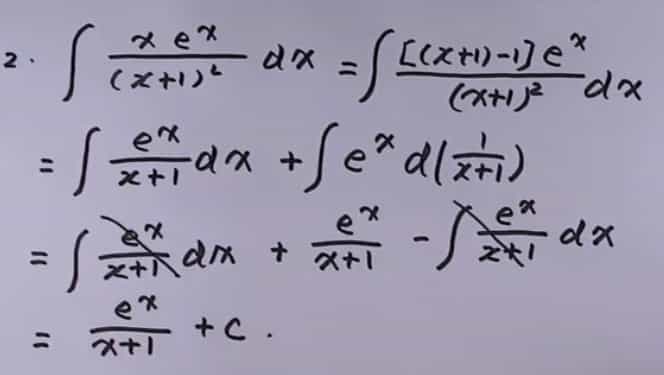 2. ∫ x e^x / (x+1)² dx = ∫ [(x+1)-1] e^x / (x+1)² dx
= ∫ e^x / x+1 dx + ∫ e^x d(1 / x+1)
= ∫ e^x / x+1 dx + e^x / x+1 - ∫ e^x / x+1 dx
= e^x / x+1 + c .